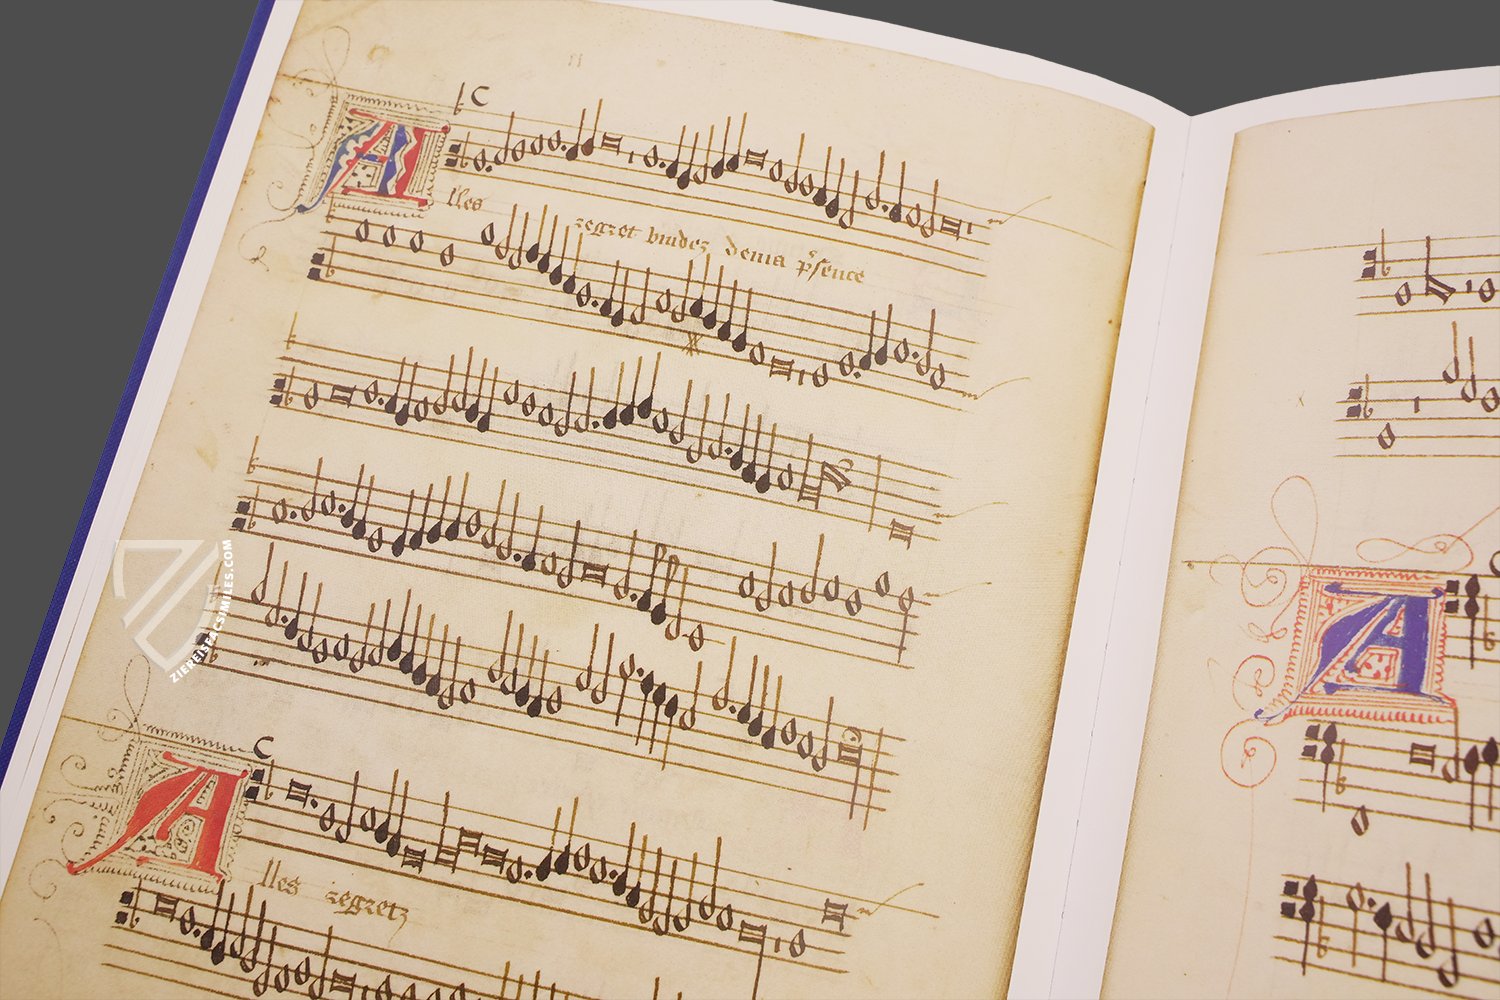 C
Alles regret vuidez de ma p̄sence
C
Alles regretz
A
ZIEREIS FACSIMILES.COM